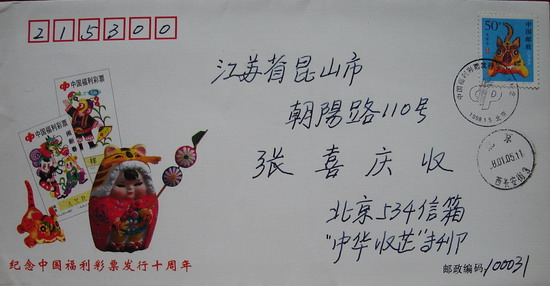 215300
50分
中国邮政
江苏省昆山市
朝陽路110号
张喜庆收
中国福利彩票
中国福利彩票
样
1998.1.5.北京
北京
8.01.05.11
西长安街
北京534信箱
"中华收芷"
纪念中国福利彩票发行十周年
邮政编码100031